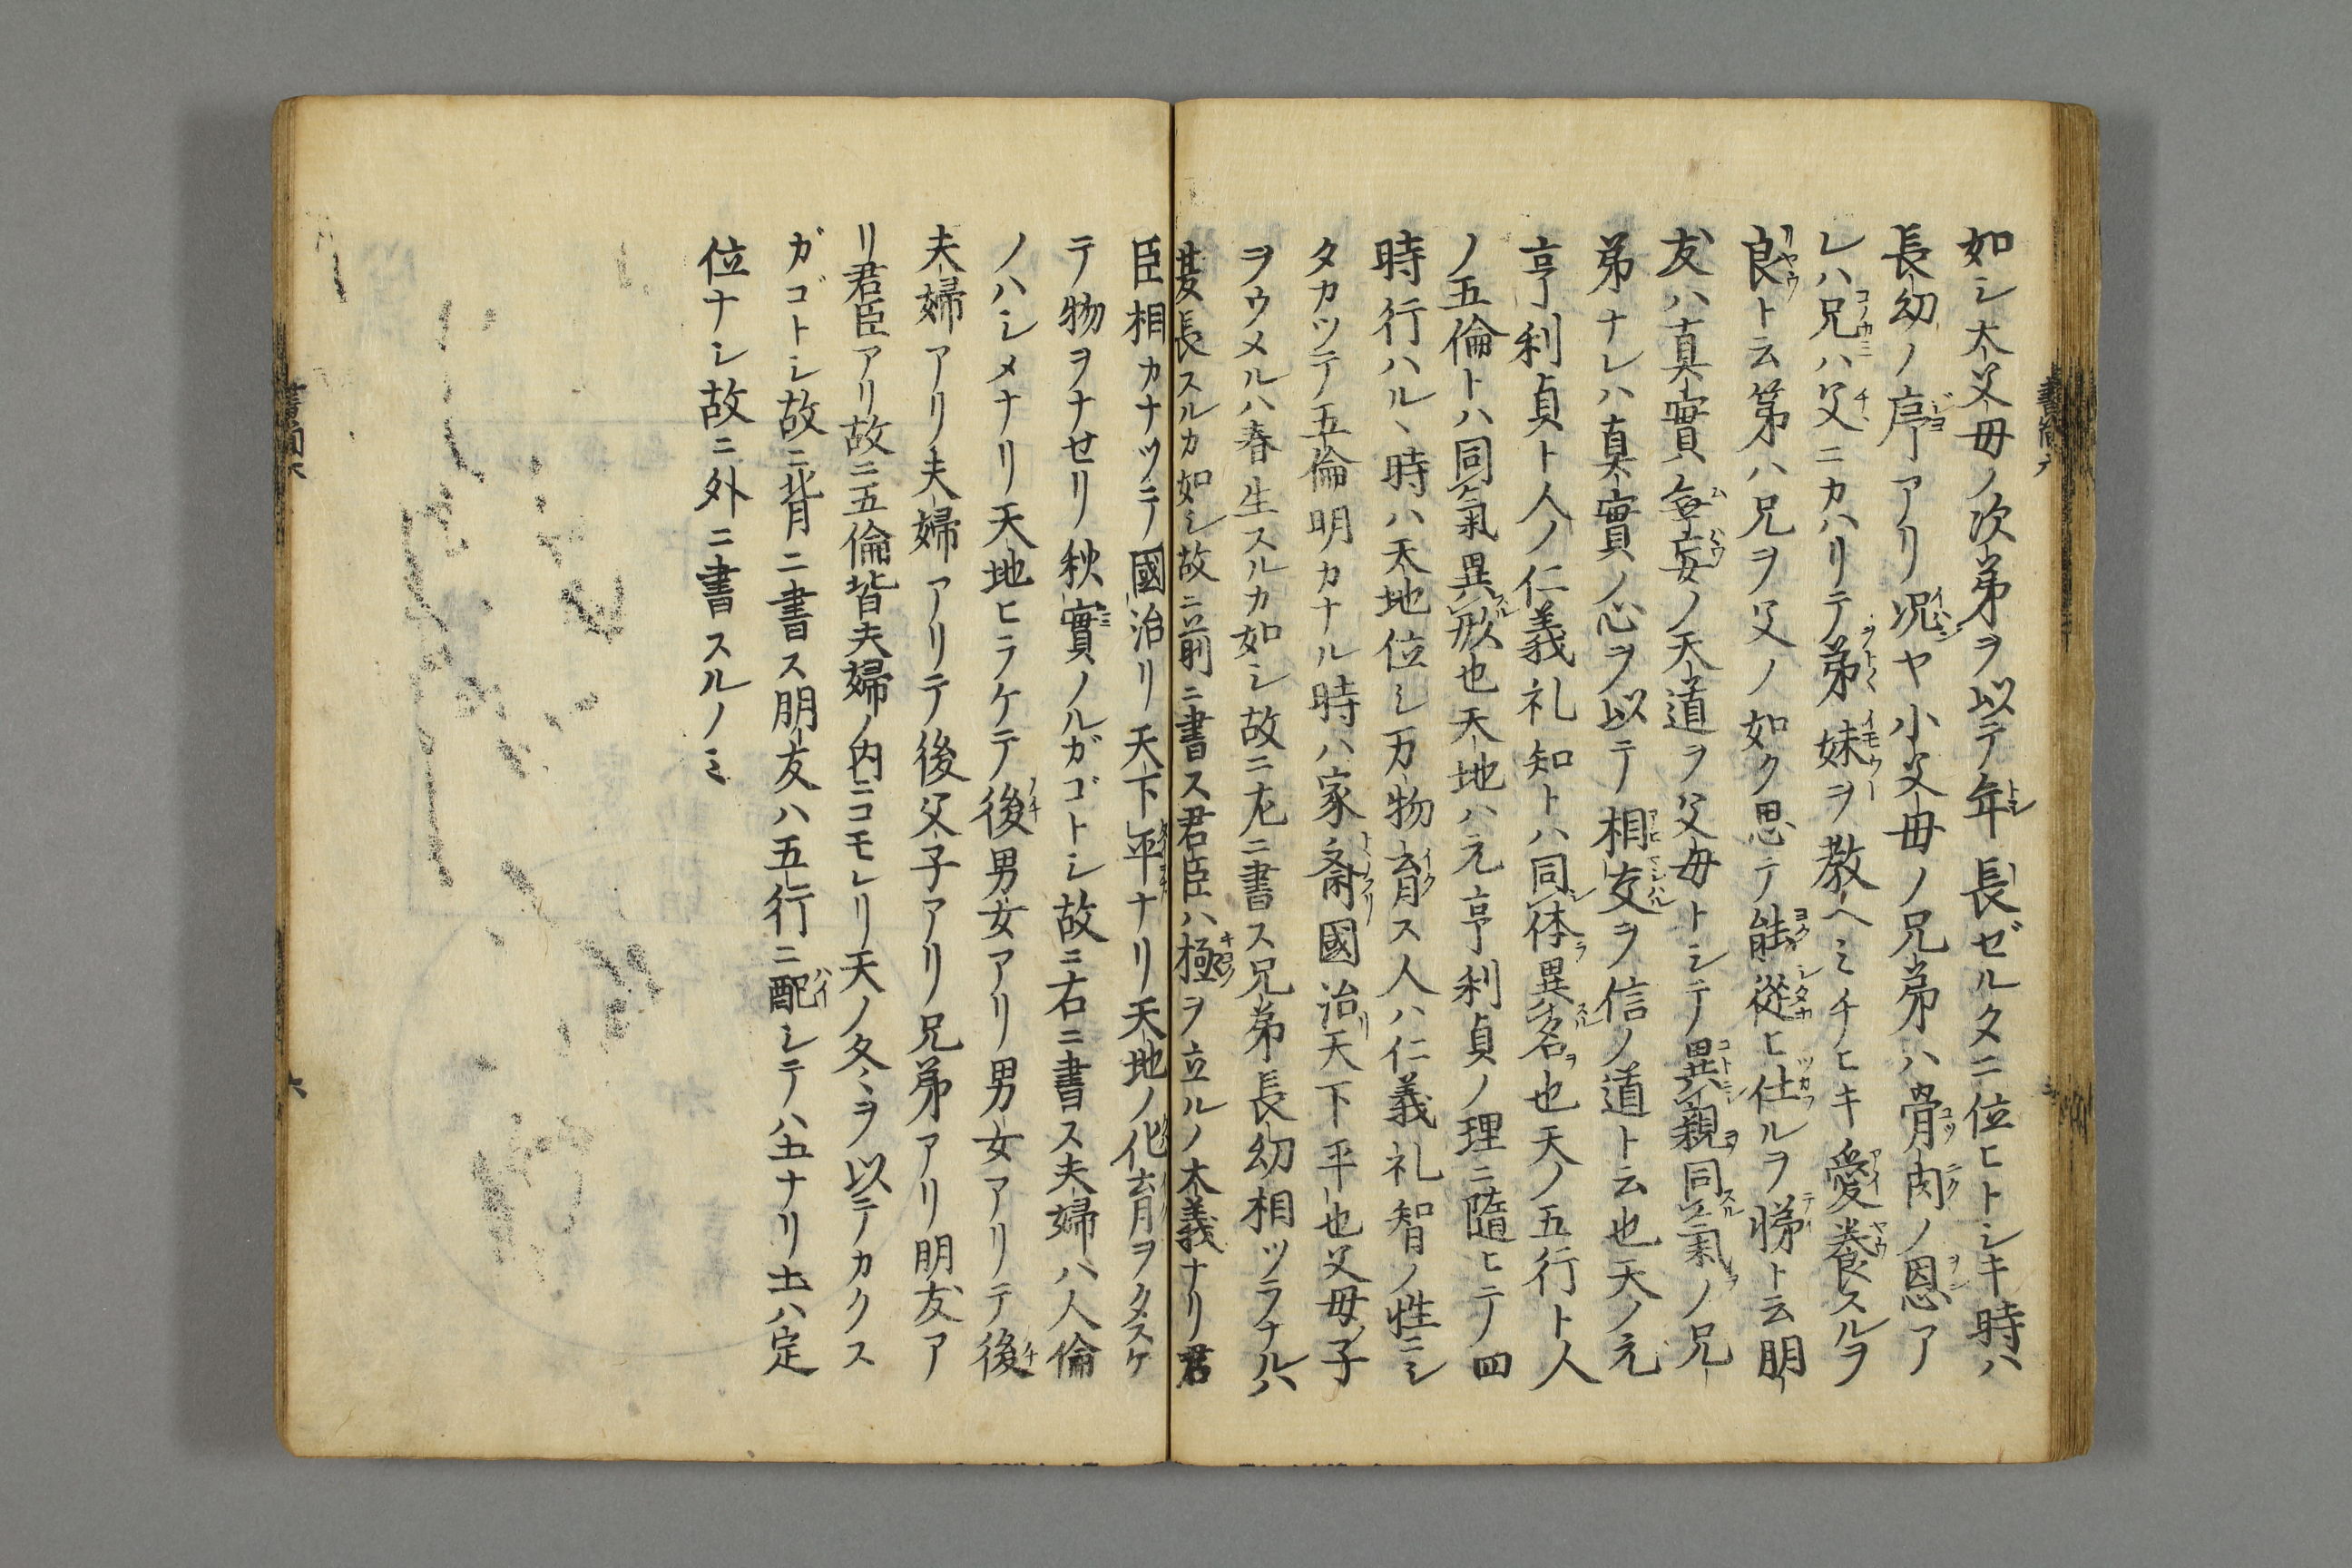 如シ太父母ノ次第ヲ以テ年長ゼルタニ位ヒトシキ時ハ
長幼ノ序アリ况ヤ小父母ノ兄弟ハ骨肉ノ恩ア
レハ兄ハ父ニカハリテ弟妹ヲ教ヘミチヒキ愛養スルヲ
良ト云第ハ兄ヲ父ノ如ク思テ能從ヒ仕ルヲ悌ト云朋
友ハ真實無妄ノ天道ヲ父母トシテ異親同氣ノ兄
弟ナレハ真實ノ心ヲ以テ相交ヲ信ノ道ト云也天ノ元
亨利貞ト人ノ仁義礼知トハ同体異名也天ノ五行ト人
ノ五倫トハ同氣異形也天地ハ元亨利貞ノ理ニ隨ヒテ四
時行ハルヽ時ハ天地位シ万物育ス人ハ仁義礼智ノ性ニシ
タカツテ五倫明カナル時ハ家齊國治天下平也父母子
ヲウメルハ春生スルカ如シ故ニ左ニ書ス兄弟長幼相ツラナルハ
夏長スルカ如シ故ニ前ニ書ス君臣ハ極ヲ立ルノ太義ナリ君
臣相カナツテ國治リ天下平ナリ天地ノ化育ヲタスケ
テ物ヲナセリ秋實ノルガゴトシ故ニ右ニ書ス夫婦ハ人倫
ノハシメナリ天地ヒラケテ後男女アリ男女アリテ後
夫婦アリ夫婦アリテ後父子アリ兄弟アリ朋友ア
リ君臣アリ故ニ五倫皆夫婦ノ内ニコモレリ天ノ冬ヽヲ以テカクス
ガゴトシ故ニ背ニ書ス朋友ハ五行ニ配シテハ土ナリ土ハ定
位ナシ故ニ外ニ書スルノミ
六